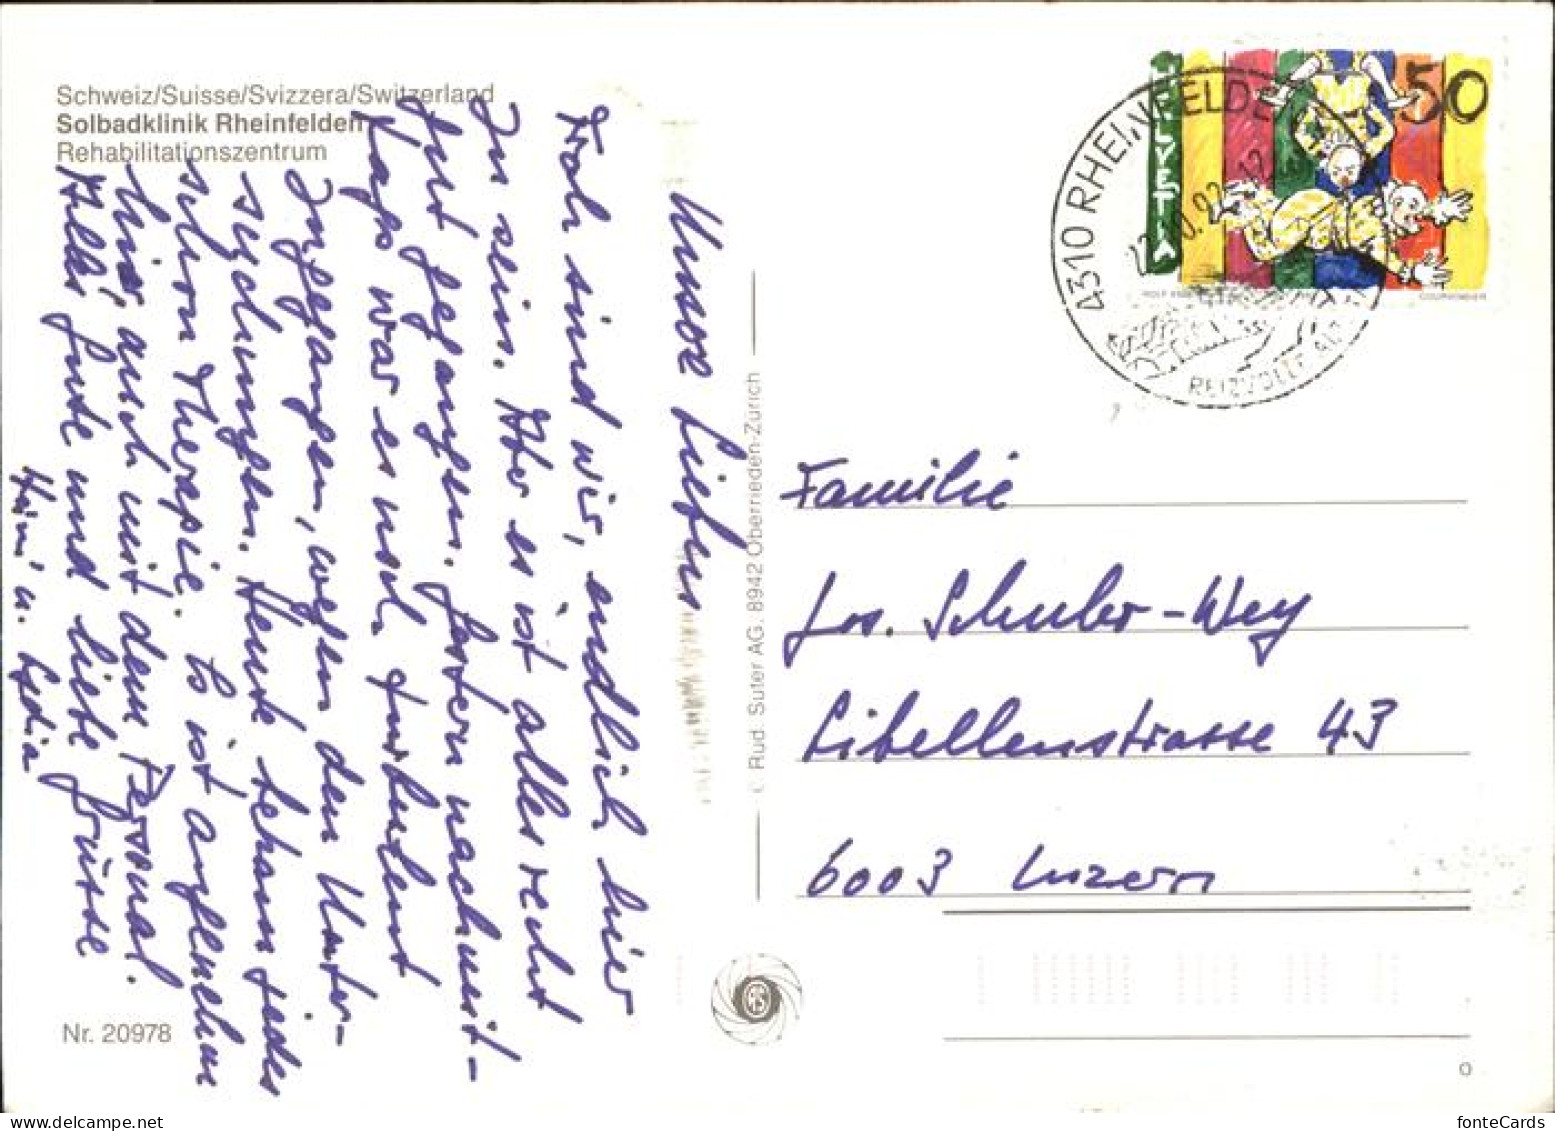 Schweiz/Suisse/Svizzera/Switzerland
Solbadklinik Rheinfelden
Rehabilitationszentrum
Unsere Lieben
Froh sind wir, endlich hier
zu sein. Aber es ist alles recht
gut gegangen. Gestern nachmit-
tags war es noch turbulent
zugegangen, wegen den Unter-
suchungen. Heute bekam jedes
schon Therapie. Es ist angenehm
hier, auch mit dem Personal.
Alles Gute und liebe Grüsse
Heini u. Lydia
Nr. 20978
© Rud. Suter AG. 8942 Oberrieden-Zürich
RS
HELVETIA
50
COURVOISIER
4310 RHEINFELDEN
REIZVOLLE ALT
Familie
Jos. Schuler-Wey
Libellenstrasse 43
6003 Luzern
fonteCards